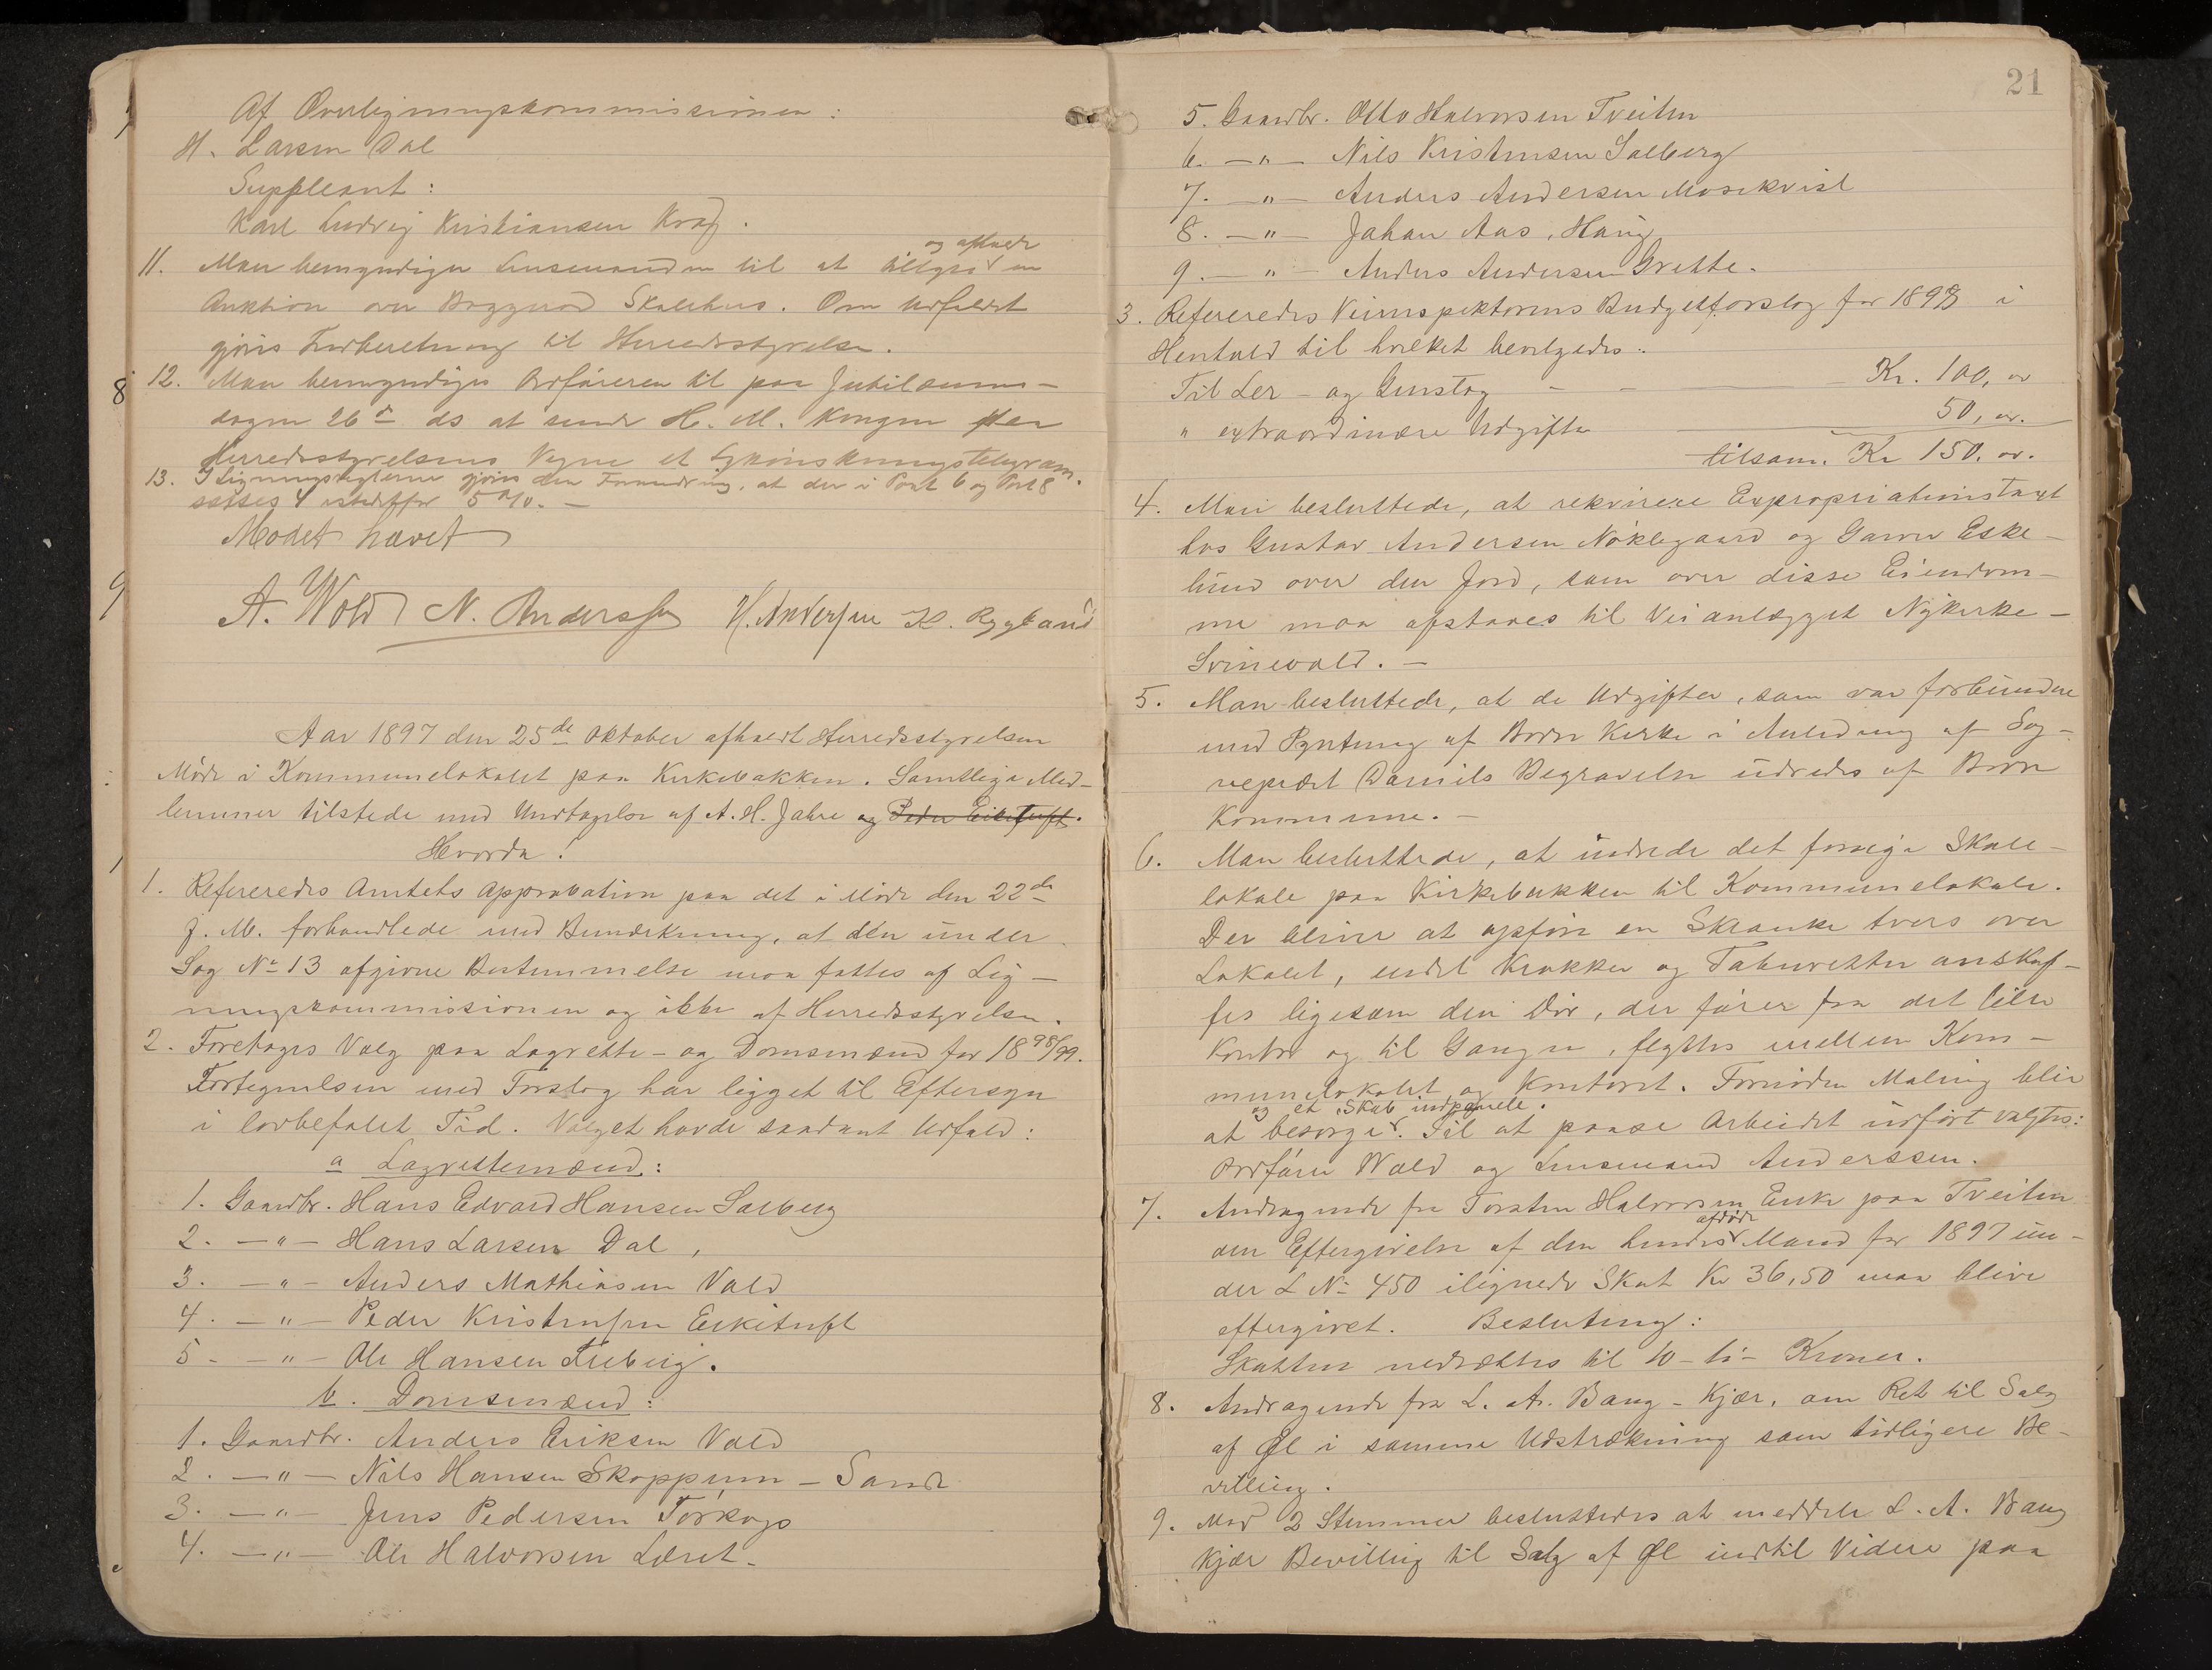 Af Overligningskommissionen:
H. Larsen Dal
Suppleant:
Karl Ludvig Kristiansen Krag.
og afholde
11. Man bemyndiger Lensmanden til at tillyse en
Auktion over Boggerød Skolehus. Om Udfaldet
gjøres Indberetning til Herredsstyrelsen.
12. Man bemyndiger Ordføreren til paa Jubilæums-
dagen 26de ds at sende H. M. Kongen paa
Herredsstyrelsens Vegne et Lykønskningstelegram.
13. I Ligningsreglerne gjøres den Forandring, at der i Post 6 og Post 8
sættes 4 istedetfor 5 %. —
Mødet hævet
A. Wold N. Anderssen H. Andersen H. Rygland
Aar 1897 den 25de Oktober afholdt Herredsstyrelsen
Møde i Kommunelokalet paa Kirkebakken. Samtlige Med-
lemmer tilstede med Undtagelse af A. H. Jahre og Peder Eikituft.
Hvorda!
1. Refereredes Amtets Approbation paa det i Møde den 22de
f. M. forhandlede med Bemærkning, at den under
Sag No 13 afgivne Bestemmelse maa fattes af Lig-
ningskommissionen og ikke af Herredsstyrelsen.
2. Foretoges Valg paa Lagrette- og Domsmænd for 1898/99.
Fortegnelsen med Forslag har ligget til Eftersyn
i lovbefalet Tid. Valget havde saadant Udfald:
a Lagrettemænd:
1. Gaardbr. Hans Edvard Hansen Solberg
2. —"— Hans Larsen Dal,
3. —"— Anders Mathiasen Vold
4. —"— Peder Kristensen Eikituft
5. —"— Ole Hansen Freberg.
b. Domsmænd:
1. Gaardbr. Anders Eriksen Vold
2. —"— Nils Hansen Skoppum - Sande
3. —"— Jens Pedersen Torkops
4. —"— Ole Halvorsen Læret.
21
5. Gaardbr. Otto Halvorsen Tveiten
6. —"— Nils Kristensen Solberg
7. —"— Anders Andersen Mosekvist
8. —"— Johan Aas, Haug
9. —"— Anders Andersen Grette.
3. Refereredes Veiinspektørens Budgetforslag for 1898 i
Henhold til hvilket bevilgedes:
Til Ler- og Grustag — — Kr. 100, 00
" extraordinære Udgifter 50, 00.
tilsam. Kr 150. 00.
4. Man besluttede, at rekvirere Expropriationstaxt
hos Gustav Andersen Nøklegaard og Garver Eske-
lund over den Jord, som over disse Eiendom-
me maa afstaaes til Veianlægget Nykirke-
Svinevold. —
5. Man besluttede, at de Udgifter, som var forbundne
med Pyntning af Borre Kirke i Anledning af Sog-
nepræst Daniels Begravelse udredes af Borre
Kommune. —
6. Man besluttede, at indrede det forrige Skole-
lokale paa Kirkebakken til Kommunelokale.
Der bliver at opføre en Skranke tvers over
Lokalet, endel Krakker og Tabouretter anskaf-
fes ligesom den Dør, der fører fra det lille
Kontor og til Gangen, flyttes mellem Kom-
munelokalet og Kontoret. Fornøden Maling blir
og et Skab indpanele.
at besørge. Til at paase Arbeidet udført valgtes:
Ordfører Wold og Lensmand Anderssen.
7. Andragende fra Torsten Halvorsen Enke paa Tveiten
afdøde
om Eftergivelse af den hendes Mand for 1897 un-
der L No 450 ilignede Skat Kr 36,50 maa blive
eftergivet. Beslutning:
Skatten nedsættes til 10 - ti - Kroner.
8. Andragende fra L. A. Bang - Kjær, om Ret til Salg
af Øl i samme Udstrækning som tidligere Be-
villing.
9. Mod 2 Stemmer besluttedes at meddele L. A. Bang
Kjær Bevilling til Salg af Øl indtil Videre paa